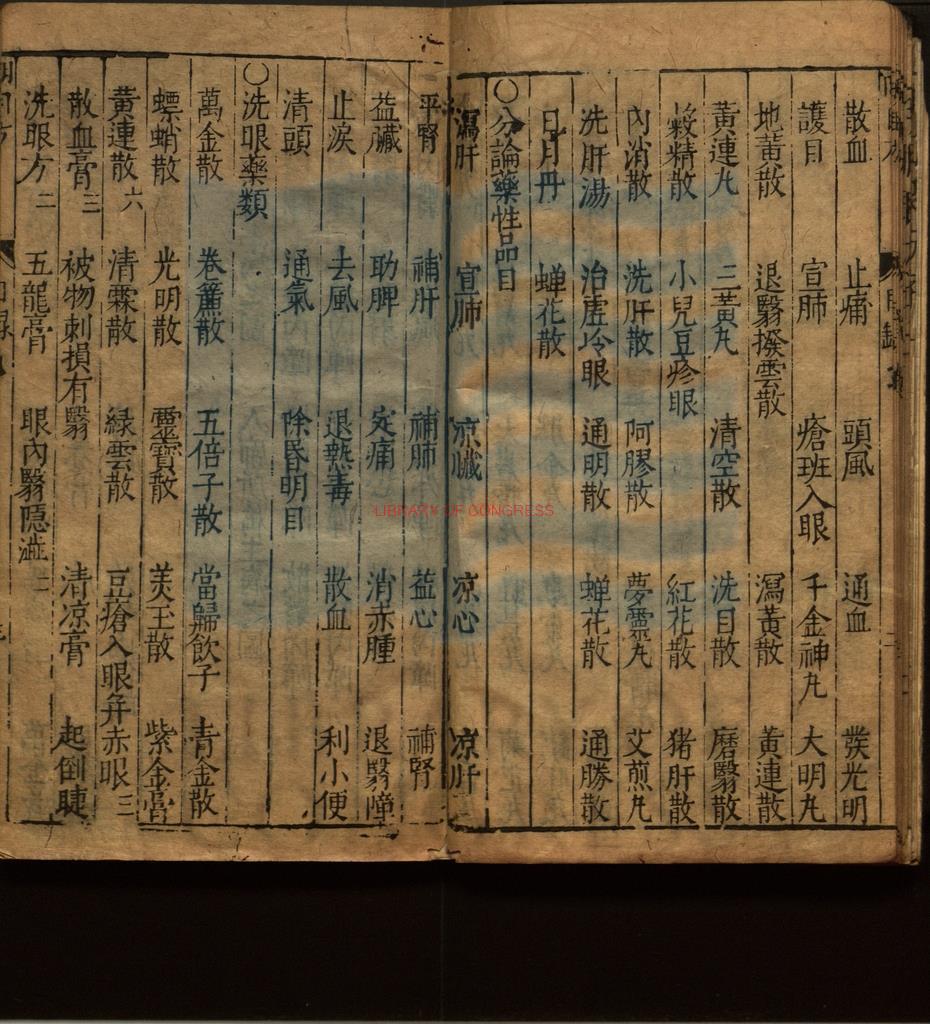 散血 止痛 頭風 通血 發光明
護目 宣肺 瘡班入眼 千金神丸 大明丸
地黃散 退翳撥雲散 瀉黃散 黃連散
黃連丸 三黃丸 清空散 洗目散 磨翳散
穀精散 小兒豆疹眼 紅花散 猪肝散
內消散 洗肝散 阿膠散 夢靈丸 艾煎丸
洗肝湯 治虛冷眼 通明散 蟬花散 通勝散
日月丹 蟬花散
○分論藥性品目
瀉肝 宣肺 凉臟 凉心 凉肝
平腎 補肝 補肺 益心 補腎
益臟 助脾 定痛 消赤腫 退翳障
止淚 去風 退熱毒 散血 利小便
清頭 通氣 除昏明目
○洗眼藥類
萬金散 卷簾散 五倍子散 當歸飲子 青金散
螵蛸散 光明散 靈寶散 美玉散 紫金膏
黃連散六 清霖散 綠雲散 豆瘡入眼弁赤眼三
散血膏三 被物刺損有翳 清凉膏 起倒睫
洗眼方二 五龍膏 眼內翳隱澁二
LIBRARY OF CONGRESS